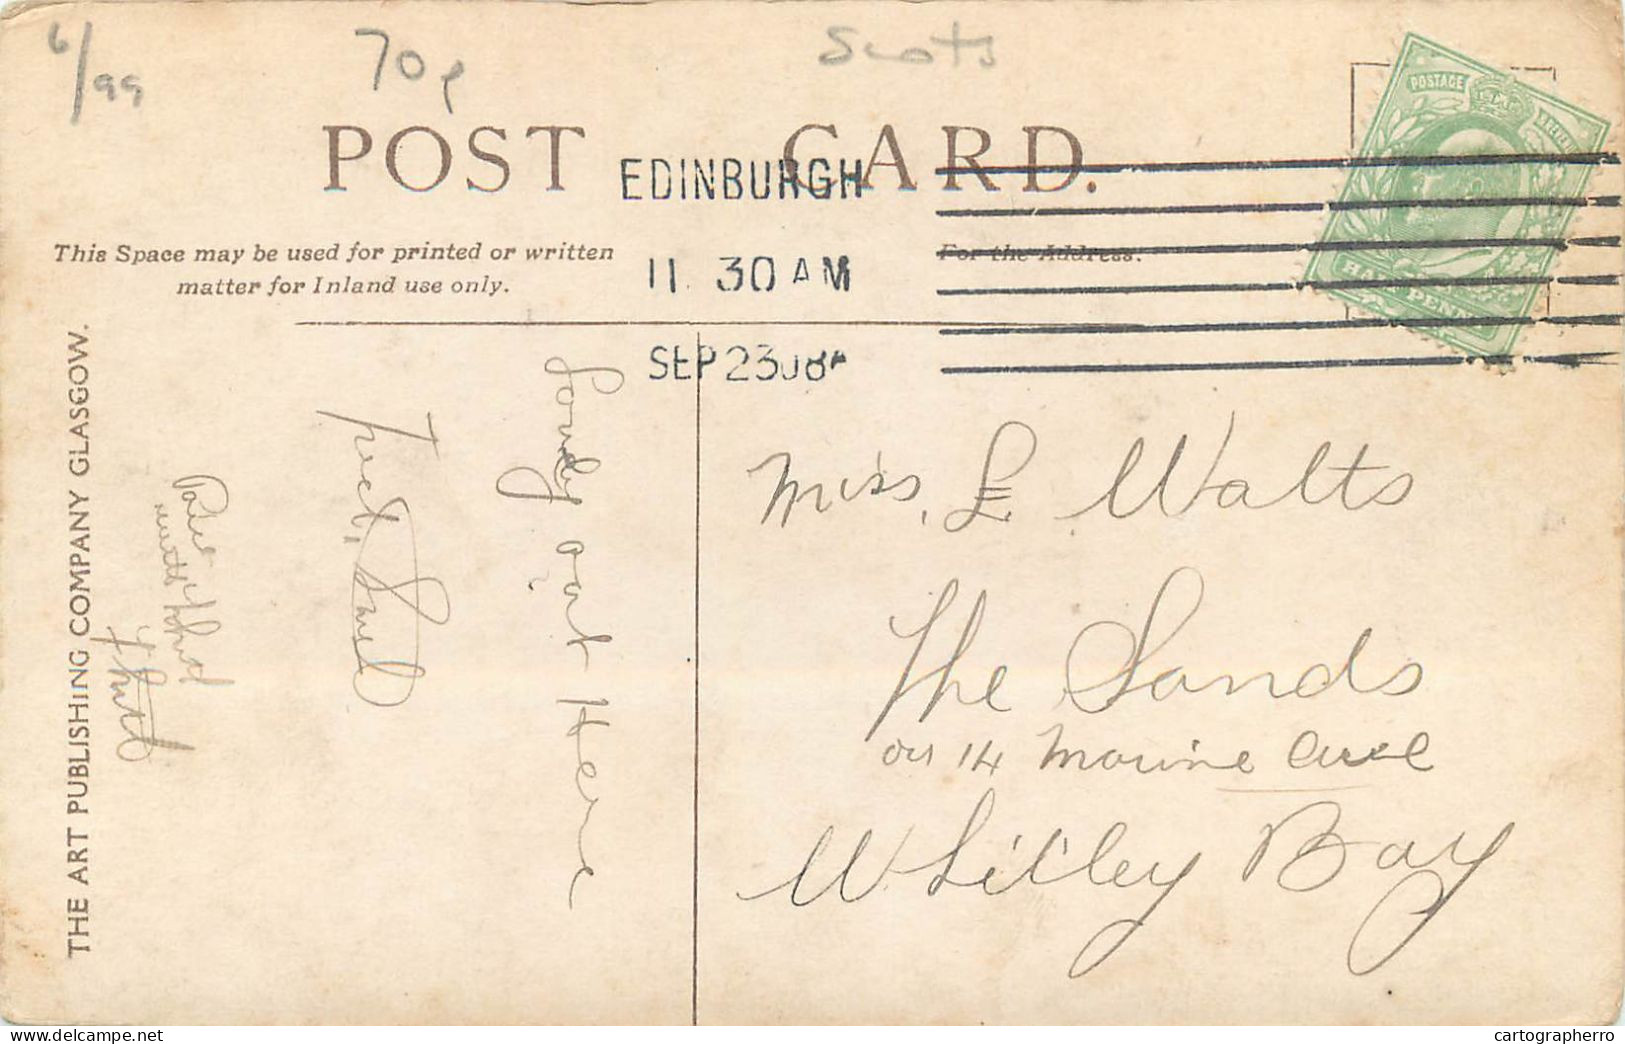 6/99
70p
Scots
POST CARD.
POSTAGE
HALF PENNY
EDINBURGH
11 30 AM
SEP 23 08
This Space may be used for printed or written
matter for Inland use only.
For the Address.
THE ART PUBLISHING COMPANY GLASGOW.
Lovely out Here
Miss, E Walts
The Sands
or 14 Marine Ave
Whitley Bay
cartographerro
delcampe.net